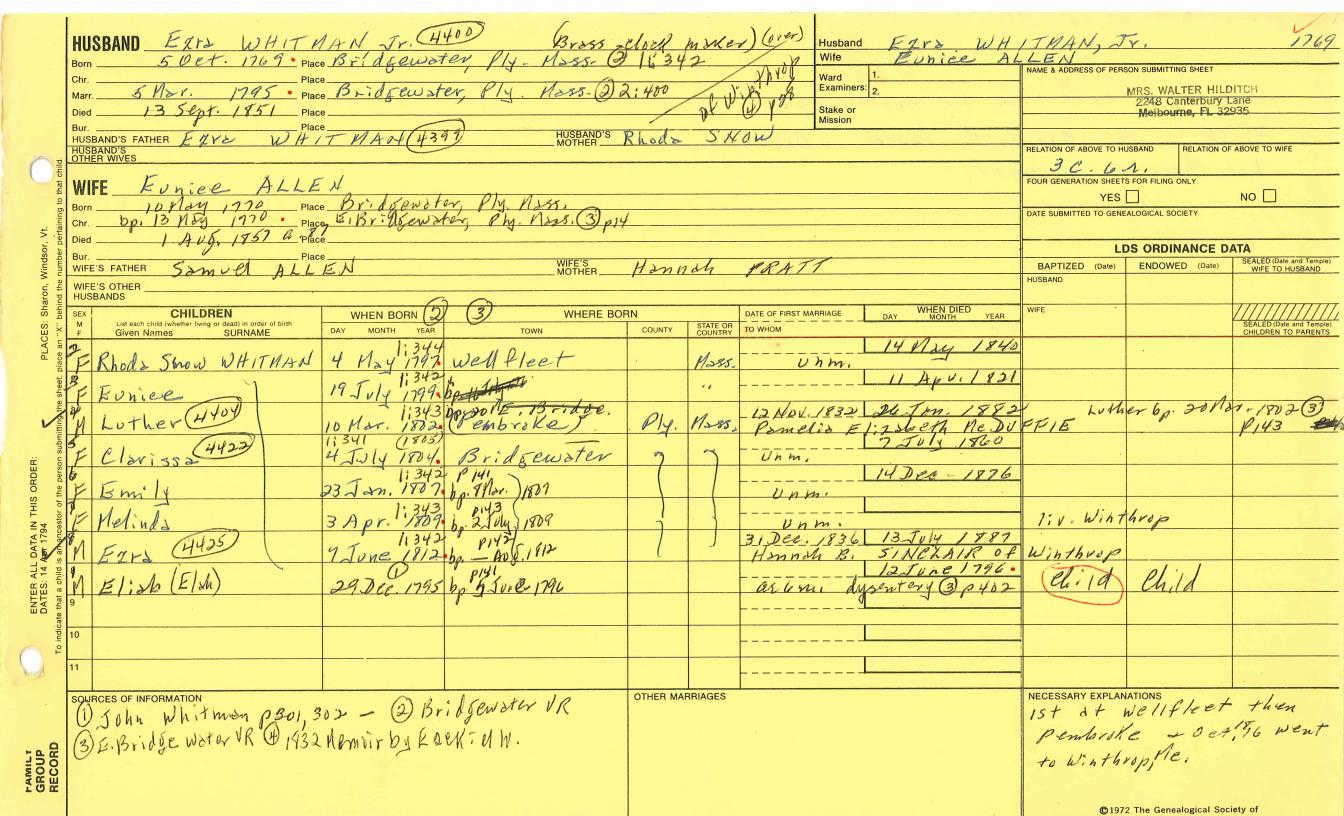 HUSBAND Ezra WHITMAN Jr. 4400 (Brass-clock maker) (over)
Born 5 Oct. 1769 Place Bridgewater, Ply. Mass. ② 1:342
Chr. Place
Marr. 5 Mar. 1795 Place Bridgewater, Ply. Mass. ② 2:400
of Winthrop ④ p28
Died 13 Sept. 1851 Place
Bur. Place
HUSBAND'S FATHER Ezra WHITMAN 4399 HUSBAND'S MOTHER Rhoda SNOW
HUSBAND'S OTHER WIVES
WIFE Eunice ALLEN
Born 10 May 1770 Place Bridgewater, Ply. Mass.
Chr. bp. 13 May 1770 Place E. Bridgewater, Ply. Mass. ③ p14
Died 1 Aug. 1857 a 87 Place
Bur. Place
WIFE'S FATHER Samuel ALLEN WIFE'S MOTHER Hannah PRATT
WIFE'S OTHER HUSBANDS
Husband Ezra WHITMAN, Jr. 1769
Wife Eunice ALLEN
Ward Examiners: 1. 2.
Stake or Mission
NAME & ADDRESS OF PERSON SUBMITTING SHEET
MRS. WALTER HILDITCH
2248 Canterbury Lane
Melbourne, FL 32935
RELATION OF ABOVE TO HUSBAND RELATION OF ABOVE TO WIFE
3 C. 6 r.
FOUR GENERATION SHEETS FOR FILING ONLY
YES NO
DATE SUBMITTED TO GENEALOGICAL SOCIETY
LDS ORDINANCE DATA
BAPTIZED (Date) ENDOWED (Date) SEALED (Date and Temple) WIFE TO HUSBAND
HUSBAND
WIFE
SEALED (Date and Temple) CHILDREN TO PARENTS
SEX M F CHILDREN WHEN BORN ② ③ WHERE BORN DATE OF FIRST MARRIAGE WHEN DIED
List each child (whether living or dead) in order of birth
Given Names SURNAME DAY MONTH YEAR TOWN COUNTY STATE OR COUNTRY TO WHOM DAY MONTH YEAR
1:344 14 May 1840
2 F Rhoda Snow WHITMAN 4 May 1797 Wellfleet Mass. Unm.
1:342 11 Apr. 1821
3 F Eunice 19 July 1799 bp. "
1:343 bp. 20 E. Bridge. 12 Nov. 1832 26 Jan. 1882 Luther bp. 20 Mar. 1802 ③
4 M Luther 4404 10 Mar. 1802 (Pembroke) Ply. Mass. Pamelia Elizabeth McDUFFIE p143
1:341 (1803) 7 July 1860
5 F Clarissa 4422 4 July 1804 Bridgewater Unm.
1:342 p141 14 Dec - 1876
6 F Emily 23 Jan. 1807 bp. 8 Mar. 1807 Unm.
1:343 p143
7 F Melinda 3 Apr. 1809 bp. 2 July 1809 Unm. liv. Winthrop
1:342 p142 31 Dec. 1836 13 July 1887
8 M Ezra 4425 7 June 1812 bp. — Aug. 1812 Hannah B. SINCLAIR of Winthrop
① p141 12 June 1796
1 M Eliab (Elah) 29 Dec. 1795 bp 5 June 1796 dysentery ③ p402 Child Child
9
10
11
SOURCES OF INFORMATION
① John Whitman p301, 302 — ② Bridgewater VR
③ E. Bridgewater VR ④ 1832 Memoir by Ezekiel W.
OTHER MARRIAGES
NECESSARY EXPLANATIONS
1st at Wellfleet then
Pembroke - Oct. 18, '16 went
to Winthrop, Me.
©1972 The Genealogical Society of
PLACES: Sharon, Windsor, Vt.
ENTER ALL DATA IN THIS ORDER:
DATES: 14 Apr 1794
To indicate that a child is an ancestor of the person submitting the sheet, place an "X" behind the number pertaining to that child.
FAMILY GROUP RECORD